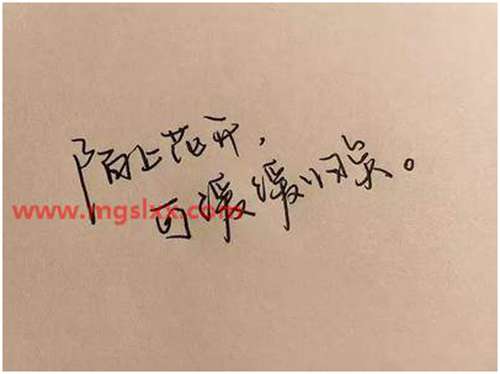 陌上花开，
可缓缓归矣。
www.mgslxx.com